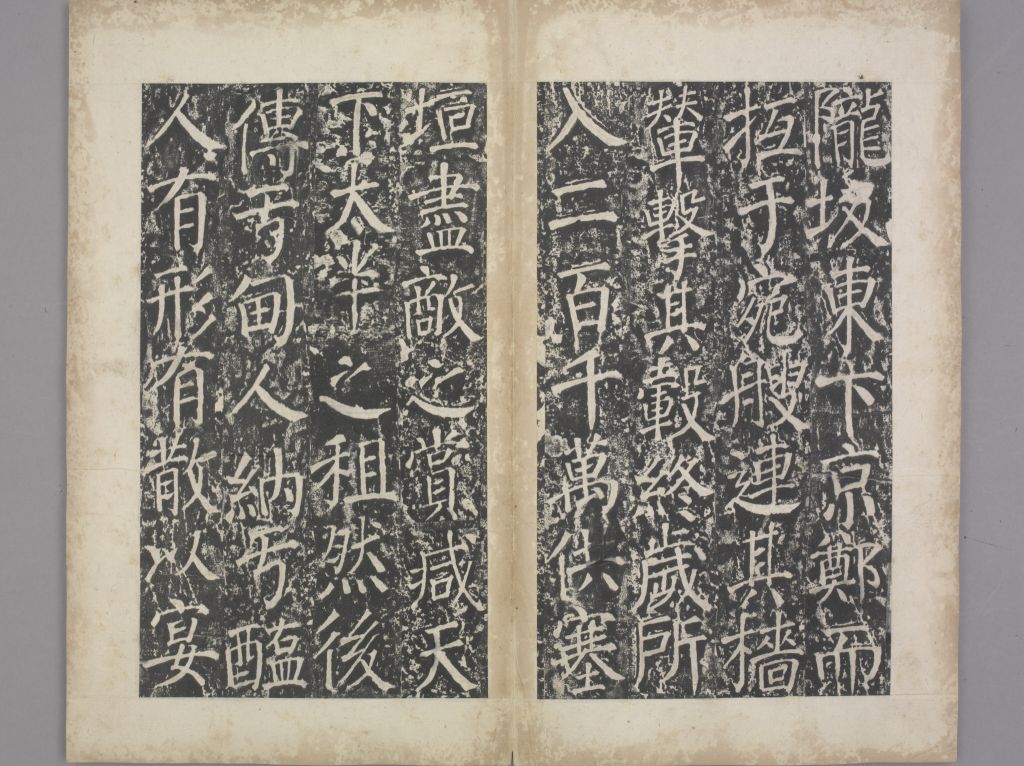 隴坂東下京鄭而
抵于宛艘連其檣
輦擊其轂終歲所
入二百千萬供塞
垣盡敵之賞減天
下太半之租然後
傳于甸人納于醖
人有形有散以宴